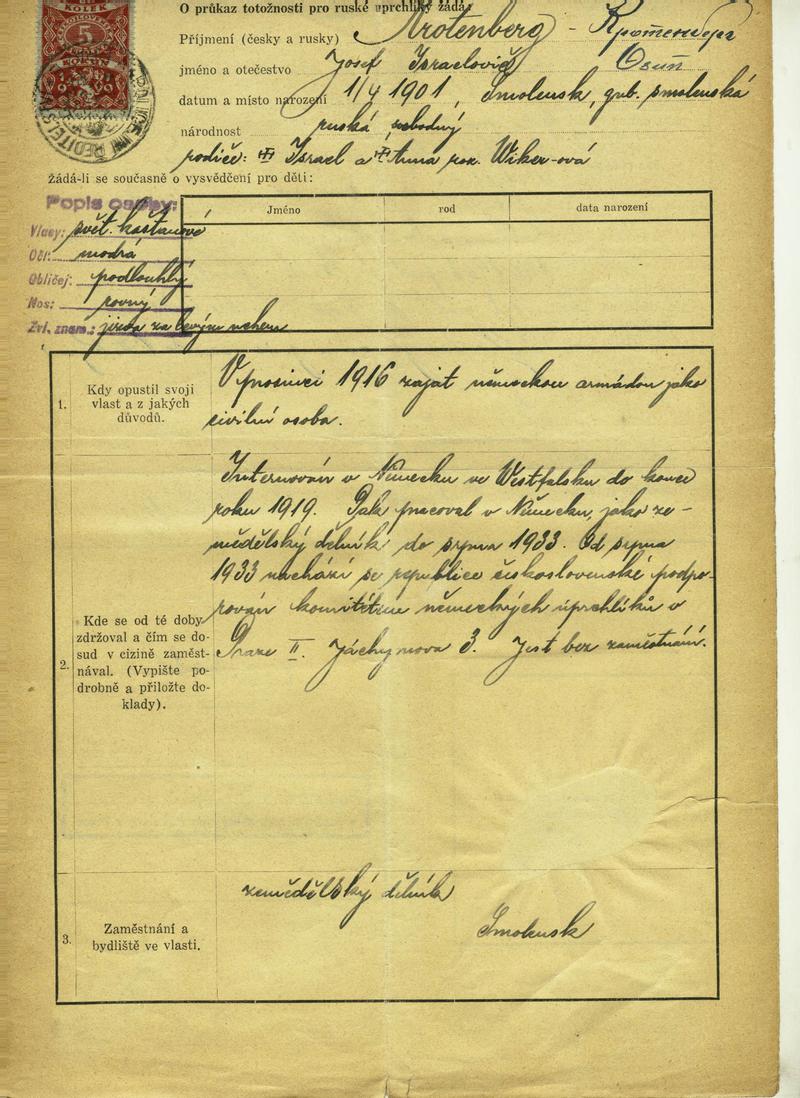 KOLEK
5
KOLKŮN
O průkaz totožnosti pro ruské uprchlíky žádá:
Příjmení (česky a rusky) Krotenberg - Кротенберг
jméno a otečestvo Josef Israelovič Осип
datum a místo narození 1/4 1901, Smolensk, gub. smolenská
národnost ruská, svobodný
rodiče: Israel a Anna roz. Wiker-ová
Žádá-li se současně o vysvědčení pro děti:
Popis osoby:
Jméno rod data narození
Vlasy: svět. kaštanové
Oči: modrá
Obličej: podlouhlý
Nos: rovný
Zvl. znam.: jizva za levým uchem
1. Kdy opustil svoji vlast a z jakých důvodů.
V prosinci 1916 zajat německou armádou jako
civilní osoba.
2. Kde se od té doby zdržoval a čím se do-
sud v cizině zaměst-
nával. (Vypište po-
drobně a přiložte do-
klady).
Internován v Německu ve Westfalsku do konce
roku 1919. Pak pracoval v Německu, jako ze-
mědělský dělník do srpna 1933. Od srpna
1933 nachází se republice československé podpo-
rován komitétem německých uprchlíků v
Praze II. Jáchymova 3. Jest bez zaměstnání.
3. Zaměstnání a
bydliště ve vlasti.
zemědělský dělník
Smolensk